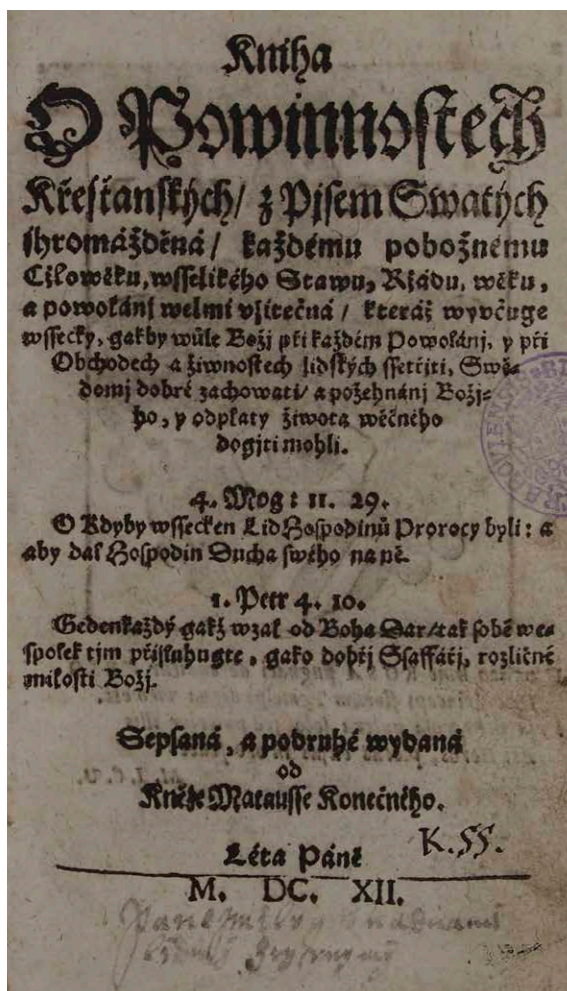 Kniha
O Powinnostech
Křesťanských/ z Pjsem Swatých
shromážděná/ každému pobožnému
Cžlowěku, wsselikého Stawu, Ržádu, wěku,
a powolánj welmi vžitečná/ kteráž wyvčuge
wssecky, gakby wůle Božj při každém Powolánj, y při
Obchodech a žiwnostech lidských ssetřjti, Swě⸗
domj dobré zachowati/ a požehnánj Božj⸗
ho, y odplaty žiwota wěčného
dogjti mohli.
4. Mog: 11. 29.
O Kdyby wssecken Lid Hospodinů Prorocy byli: a
aby dal Hospodin Ducha swého na ně.
1. Petr 4. 10.
Gedenkaždý gakž wzal od Boha Dar/tak sobě we⸗
spolek tjm přisluhugte, gako dobřj Ssaffářj, rozličné
milosti Božj.
Sepsaná, a podruhé wydaná
od
Kněze Matausse Konečného.
K.SS.
Léta Páně
M. DC. XII.